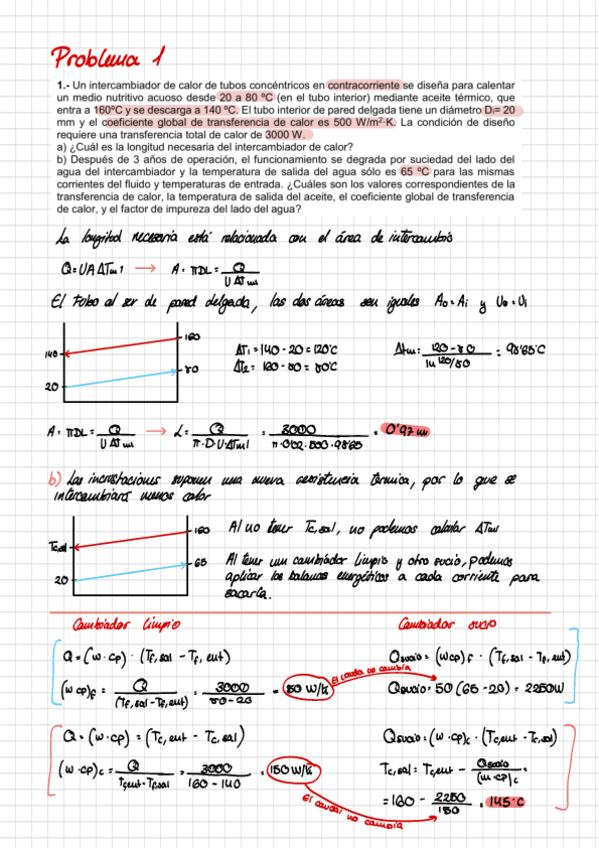 Problema 1
1.- Un intercambiador de calor de tubos concéntricos en contracorriente se diseña para calentar
un medio nutritivo acuoso desde 20 a 80 ºC (en el tubo interior) mediante aceite térmico, que
entra a 160ºC y se descarga a 140 ºC. El tubo interior de pared delgada tiene un diámetro Di= 20
mm y el coeficiente global de transferencia de calor es 500 W/m²·K. La condición de diseño
requiere una transferencia total de calor de 3000 W.
a) ¿Cuál es la longitud necesaria del intercambiador de calor?
b) Después de 3 años de operación, el funcionamiento se degrada por suciedad del lado del
agua del intercambiador y la temperatura de salida del agua sólo es 65 ºC para las mismas
corrientes del fluido y temperaturas de entrada. ¿Cuáles son los valores correspondientes de la
transferencia de calor, la temperatura de salida del aceite, el coeficiente global de transferencia
de calor, y el factor de impureza del lado del agua?
La longitud necesaria está relacionada con el área de intercambio
Q = UA ΔTml → A = πDL = Q / U ΔTml
El tubo al ser de pared delgada, las dos áreas son iguales Ao = Ai y Uo = Ui
160
140
80
20
ΔT1 = 140 - 20 = 120ºC
ΔT2 = 160 - 80 = 80ºC
Δtm = 120 - 80 / ln 120/80 = 98'65ºC
A = πDL = Q / U ΔTml → L = Q / π·D·U·ΔTml = 3000 / π·0'02·500·98'65 = 0'97 m
b) Las incrustaciones suponen una nueva resistencia térmica, por lo que se
intercambiará menos calor
160
Tc,sal
65
20
Al no tener Tc,sal, no podemos calcular ΔTml
Al tener un cambiador limpio y otro sucio, podemos
aplicar los balances energéticos a cada corriente para
sacarla.
Cambiador limpio
Cambiador sucio
Q = (w·cp) · (Tf,sal - Tf,ent)
Qsucio = (wcp)f · (Tf,sal - Tf,ent)
(w cp)f = Q / (Tf,sal - Tf,ent) = 3000 / 80 - 20 = 50 W/k
El caudal no cambia
Qsucio = 50 (65 - 20) = 2250W
Q = (w·cp) = (Tc,ent - Tc,sal)
Qsucio = (w·cp)c · (Tc,ent - Tc,sal)
(w·cp)c = Q / Tc,ent - Tc,sal = 3000 / 160 - 140 = 150 W/k
Tc,sal = Tc,ent - Qsucio / (w·cp)c =
El caudal no cambia
= 160 - 2250 / 150 = 145ºC